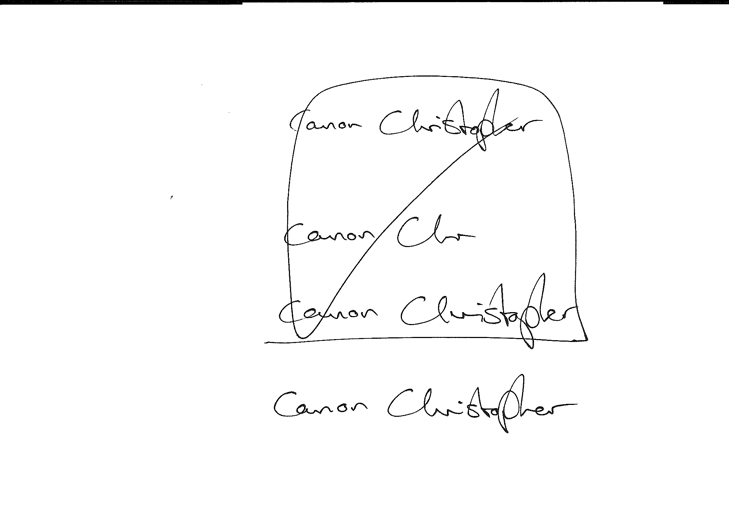 Canon Christopher
Canon Chr
Canon Christopher
Canon Christopher